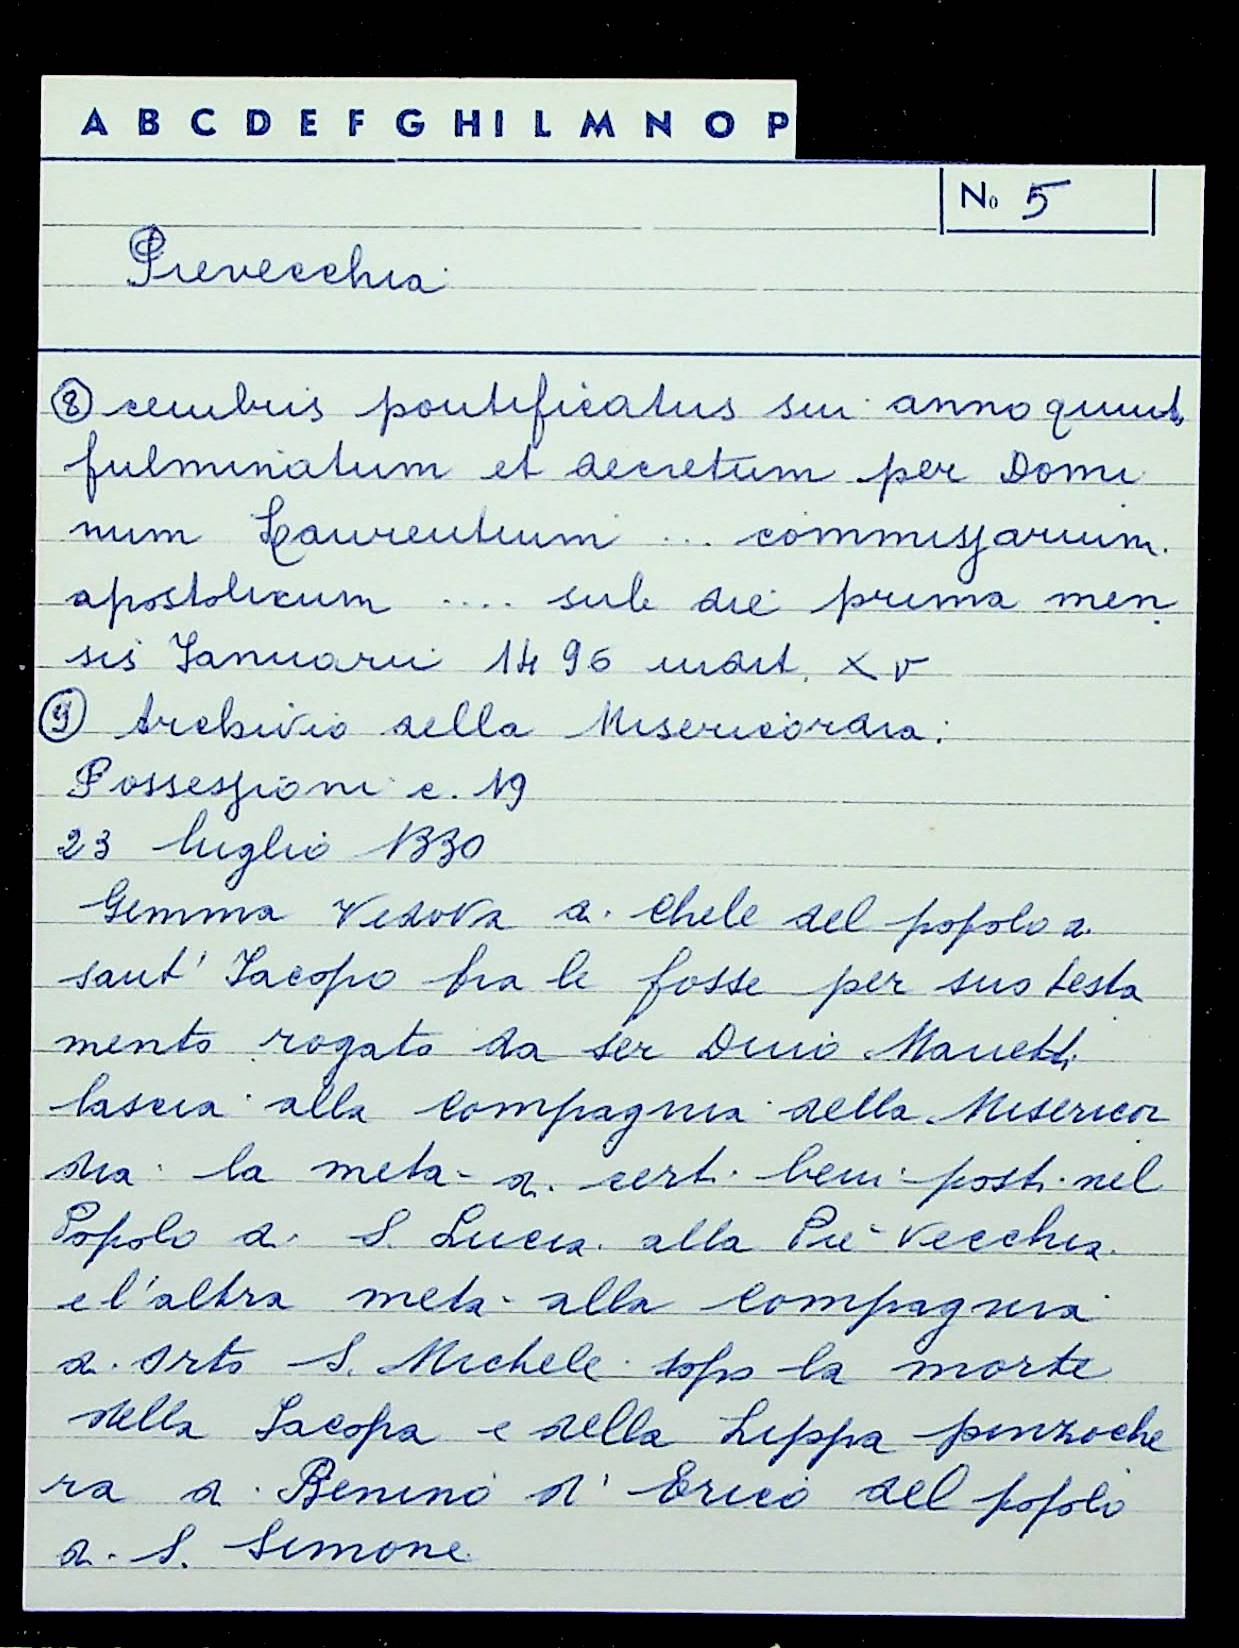 A B C D E F G H I L M N O P
No 5
Pievecchia
⑧ cembris pontificatus sui anno quint
fulminatum et decretum per Domi
num Laurentium ... commissarium
apostolicum .... sub die prima men
sis Januarii 1496 indict. XV
⑨ Archivio della Misericordia:
Possessioni c. 19
23 luglio 1330
Gemma vedova di Chele del popolo di
sant' Jacopo tra le fosse per suo testa
mento rogato da ser Duio Manetti
lascia alla compagnia della Misericor
dia la metà di certi beni posti nel
Popolo di S. Lucia alla Piè Vecchia
e l'altra metà alla compagnia
di Orto S. Michele dopo la morte
della Jacopa e della Lippa pinzoche
ra di Benino d' Erico del popolo
di S. Simone